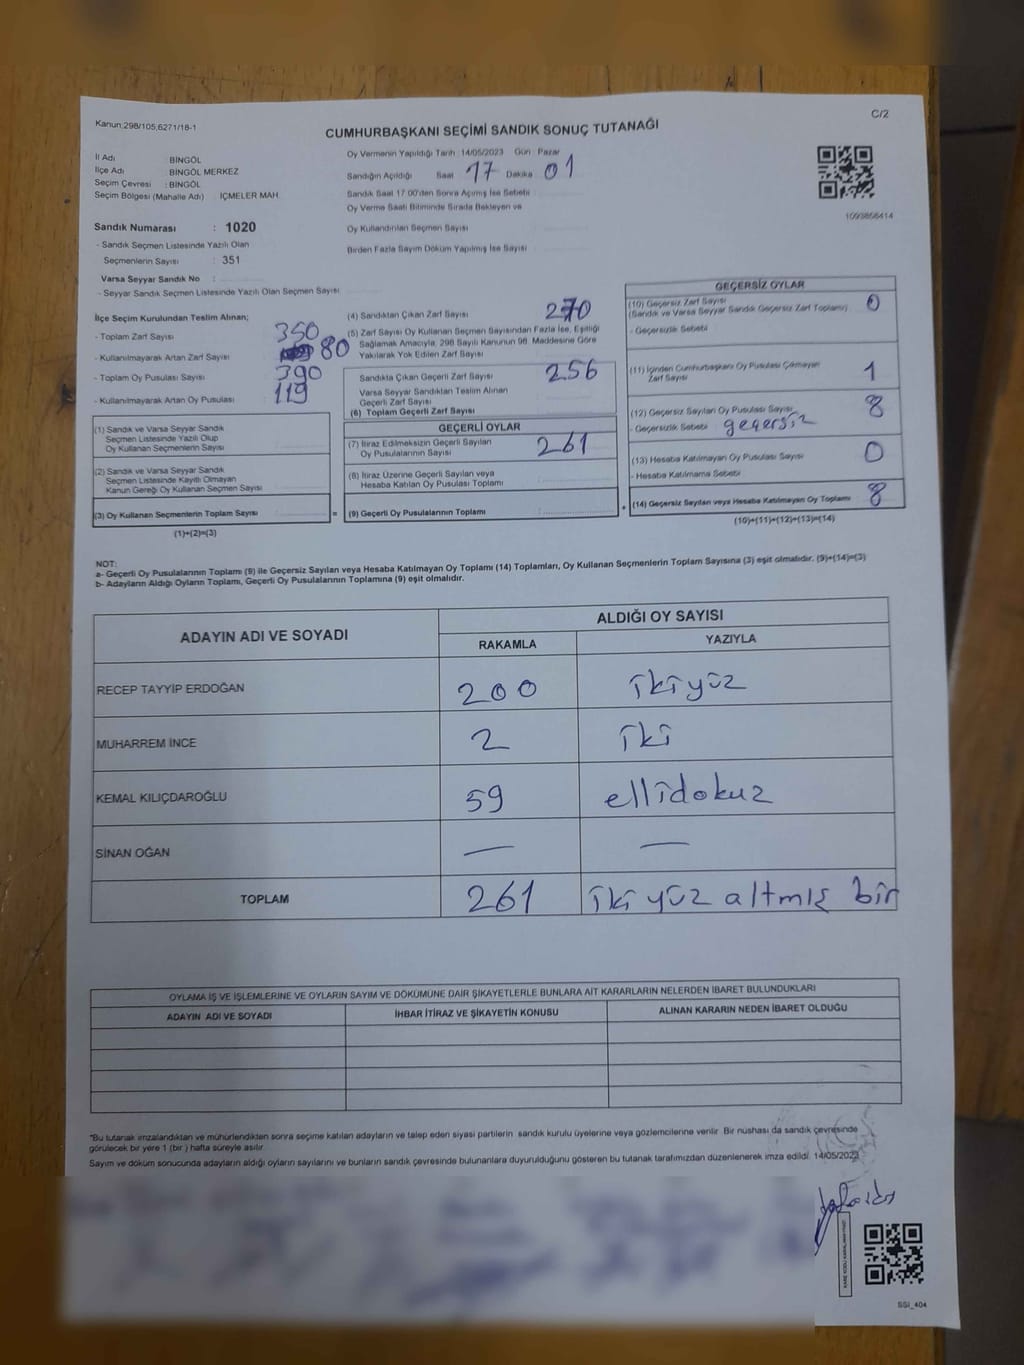 Kanun:298/105,6271/18-1
C/2
CUMHURBAŞKANI SEÇİMİ SANDIK SONUÇ TUTANAĞI
İl Adı BİNGÖL
İlçe Adı BİNGÖL MERKEZ
Seçim Çevresi : BİNGÖL
Seçim Bölgesi (Mahalle Adı) : İÇMELER MAH.
Sandık Numarası : 1020
- Sandık Seçmen Listesinde Yazılı Olan
Seçmenlerin Sayısı : 351
Varsa Seyyar Sandık No :
- Seyyar Sandık Seçmen Listesinde Yazılı Olan Seçmen Sayısı
Oy Vermenin Yapıldığı Tarih :14/05/2023 Gün : Pazar
Sandığın Açıldığı Saat 17 Dakika 01
Sandık Saat 17.00'den Sonra Açılmış İse Sebebi
Oy Verme Saati Bitiminde Sırada Bekleyen ve
Oy Kullandırılan Seçmen Sayısı
Birden Fazla Sayım Döküm Yapılmış İse Sayısı
1093856414
İlçe Seçim Kurulundan Teslim Alınan;
- Toplam Zarf Sayısı 350
- Kullanılmayarak Artan Zarf Sayısı 80
- Toplam Oy Pusulası Sayısı 390
- Kullanılmayarak Artan Oy Pusulası 119
(1) Sandık ve Varsa Seyyar Sandık
Seçmen Listesinde Yazılı Olup
Oy Kullanan Seçmenlerin Sayısı
(2) Sandık ve Varsa Seyyar Sandık
Seçmen Listesinde Kayıtlı Olmayan
Kanun Gereği Oy Kullanan Seçmen Sayısı
(3) Oy Kullanan Seçmenlerin Toplam Sayısı =
(1)+(2)=(3)
(4) Sandıktan Çıkan Zarf Sayısı 270
(5) Zarf Sayısı Oy Kullanan Seçmen Sayısından Fazla İse, Eşitliği
Sağlamak Amacıyla, 298 Sayılı Kanunun 98. Maddesine Göre
Yakılarak Yok Edilen Zarf Sayısı
Sandıkta Çıkan Geçerli Zarf Sayısı 256
Varsa Seyyar Sandıktan Teslim Alınan
Geçerli Zarf Sayısı
(6) Toplam Geçerli Zarf Sayısı
GEÇERLİ OYLAR
(7) İtiraz Edilmeksizin Geçerli Sayılan
Oy Pusulalarının Sayısı 261
(8) İtiraz Üzerine Geçerli Sayılan veya
Hesaba Katılan Oy Pusulası Toplamı
(9) Geçerli Oy Pusulalarının Toplamı +
GEÇERSİZ OYLAR
(10) Geçersiz Zarf Sayısı 0
(Sandık ve Varsa Seyyar Sandık Geçersiz Zarf Toplamı)
- Geçersizlik Sebebi
(11) İçinden Cumhurbaşkanı Oy Pusulası Çıkmayan
Zarf Sayısı 1
(12) Geçersiz Sayılan Oy Pusulası Sayısı 8
- Geçersizlik Sebebi geçersiz
(13) Hesaba Katılmayan Oy Pusulası Sayısı 0
- Hesaba Katılmama Sebebi
(14) Geçersiz Sayılan veya Hesaba Katılmayan Oy Toplamı 8
(10)+(11)+(12)+(13)=(14)
NOT:
a- Geçerli Oy Pusulalarının Toplamı (9) ile Geçersiz Sayılan veya Hesaba Katılmayan Oy Toplamı (14) Toplamları, Oy Kullanan Seçmenlerin Toplam Sayısına (3) eşit olmalıdır. (9)+(14)=(3)
b- Adayların Aldığı Oyların Toplamı, Geçerli Oy Pusulalarının Toplamına (9) eşit olmalıdır.
ADAYIN ADI VE SOYADI ALDIĞI OY SAYISI
RAKAMLA YAZIYLA
RECEP TAYYİP ERDOĞAN 200 ikiyüz
MUHARREM İNCE 2 iki
KEMAL KILIÇDAROĞLU 59 ellidokuz
SİNAN OĞAN — —
TOPLAM 261 iki yüz altmış bir
OYLAMA İŞ VE İŞLEMLERİNE VE OYLARIN SAYIM VE DÖKÜMÜNE DAİR ŞİKAYETLERLE BUNLARA AİT KARARLARIN NELERDEN İBARET BULUNDUKLARI
ADAYIN ADI VE SOYADI İHBAR İTİRAZ VE ŞİKAYETİN KONUSU ALINAN KARARIN NEDEN İBARET OLDUĞU
*Bu tutanak imzalandıktan ve mühürlendikten sonra seçime katılan adayların ve talep eden siyasi partilerin sandık kurulu üyelerine veya gözlemcilerine verilir. Bir nüshası da sandık çevresinde
görülecek bir yere 1 (bir) hafta süreyle asılır.
Sayım ve döküm sonucunda adayların aldığı oyların sayılarını ve bunların sandık çevresinde bulunanlara duyurulduğunu gösteren bu tutanak tarafımızdan düzenlenerek imza edildi. 14/05/2023
SSI_404